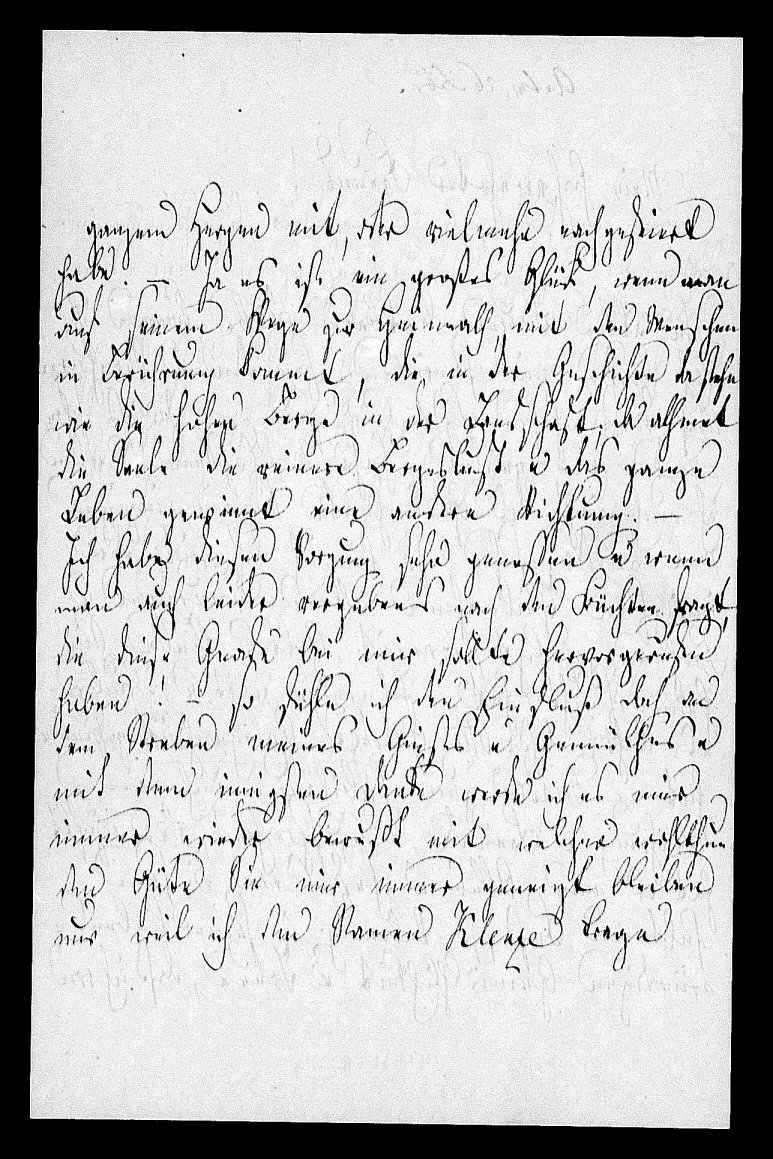 ganzem Herzen mit, oder vielmehr nachgefeiert
habe. — Ja es ist ein großes Glück, wenn man
auf seinem Wege zur Heimath, mit den Menschen
in Berührung kommt, die in der Geschichte dastehn
wie die hohen Berge in der Landschaft, da athmet
die Seele die reinere Bergesluft u das ganze
Leben gewinnt eine andere Richtung. —
Ich habe diesen Vorzug sehr genossen u wenn
man auch leider vergebens nach den Früchten fragt,
die diese Gnade bei mir sollte hervorgerufen
haben! – so fühle ich den Einfluß doch an
dem Streben meines Geistes u Gemüthes u
mit dem innigsten Danke werde ich es mir
immer wieder bewußt mit welcher wohlthuen
den Güte Sie mir immer geneigt bleiben
nur weil ich den Namen Klenze trage